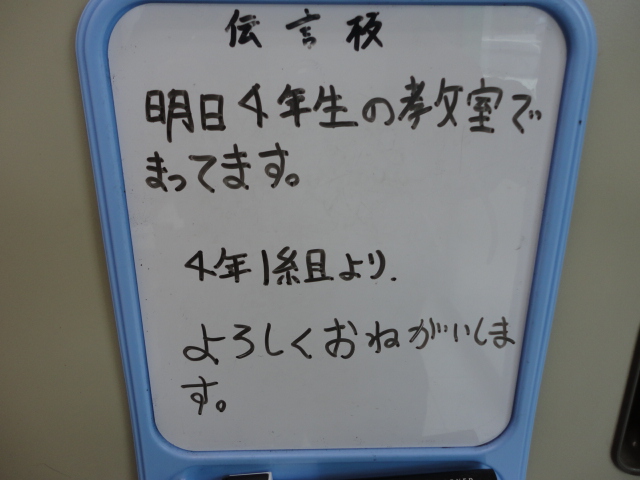 伝言板
明日4年生の教室で
まってます。
4年1組より.
よろしくおねがいしま
す。